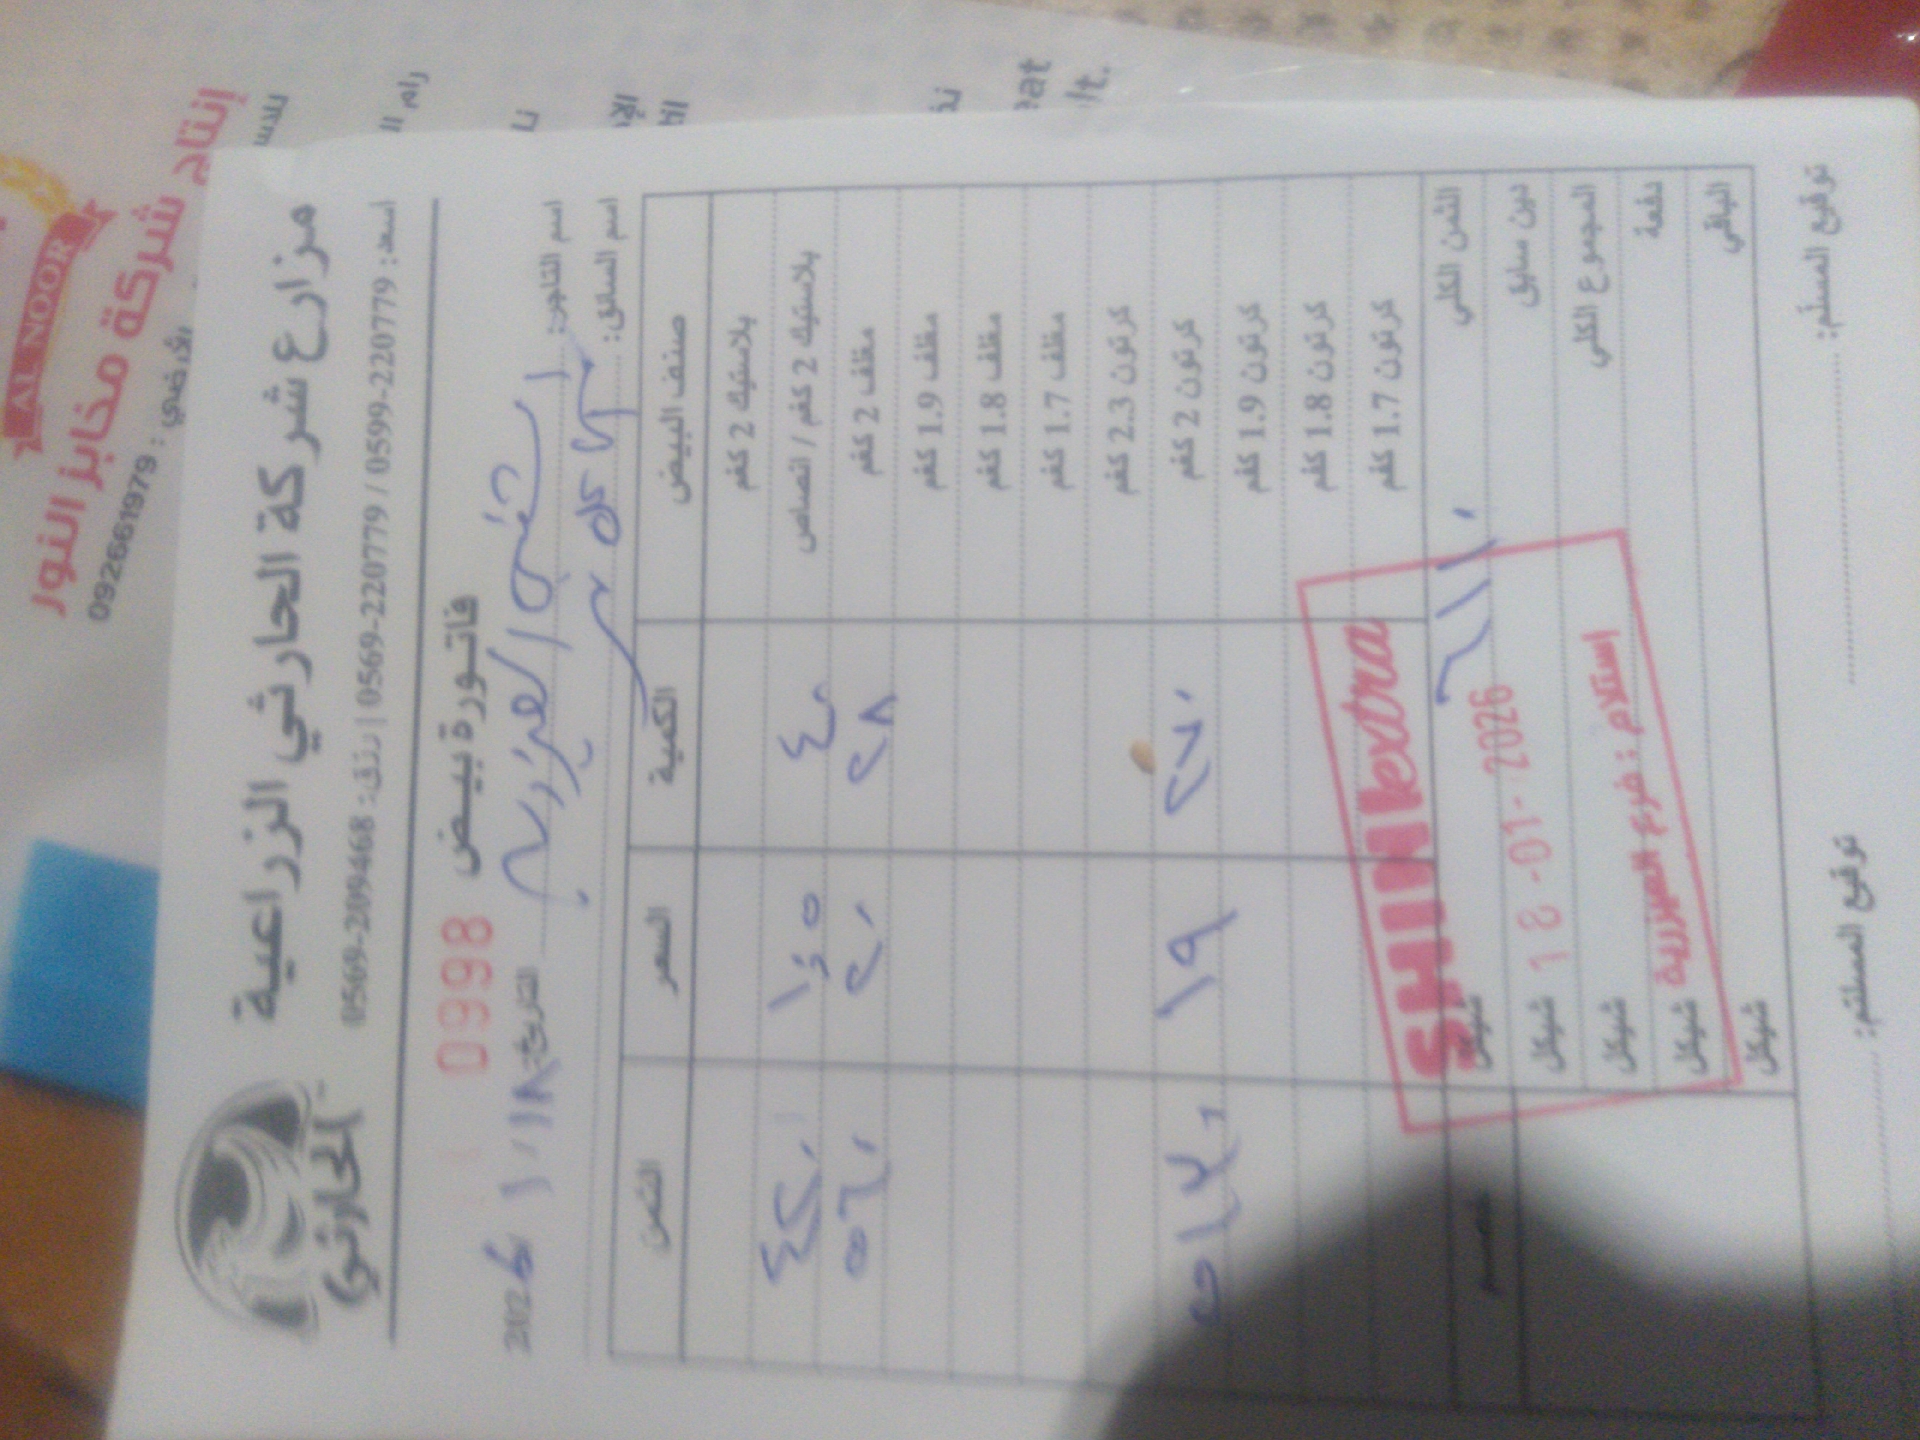 AL NOOR
إنتاج شركة مخابز النور
0926661979
مزارع شركة الحارثي الزراعية
الحارثي
اسعد: 0599-220779 / 0569-220779 | رزق: 0569-209468
فاتورة بيض
0998
اسم التاجر:
التاريخ: ١٨ / ١ / 2026
اسم السائق:
صنف البيض الكمية السعر الثمن
بلاستيك 2 كغم
بلاستيك 2 كغم / انصاص ٤٠ ١٠٫٥ ٤٢٠
مغلف 2 كغم ٢٨ ٢٠ ٥٦٠
مغلف 1.9 كغم
مغلف 1.8 كغم
مغلف 1.7 كغم
كرتون 2.3 كغم
كرتون 2 كغم ٢٧٠ ١٩ ٥١٣٠
كرتون 1.9 كغم
كرتون 1.8 كغم
كرتون 1.7 كغم
الثمن الكلي ٦١١٠ شيكل
دين سابق شيكل
المجموع الكلي شيكل
دفعة شيكل
الباقي شيكل
SHINI extra
18-01-2026
إستلام : فرع العيزرية
توقيع المسلّم:
توقيع المستلم: